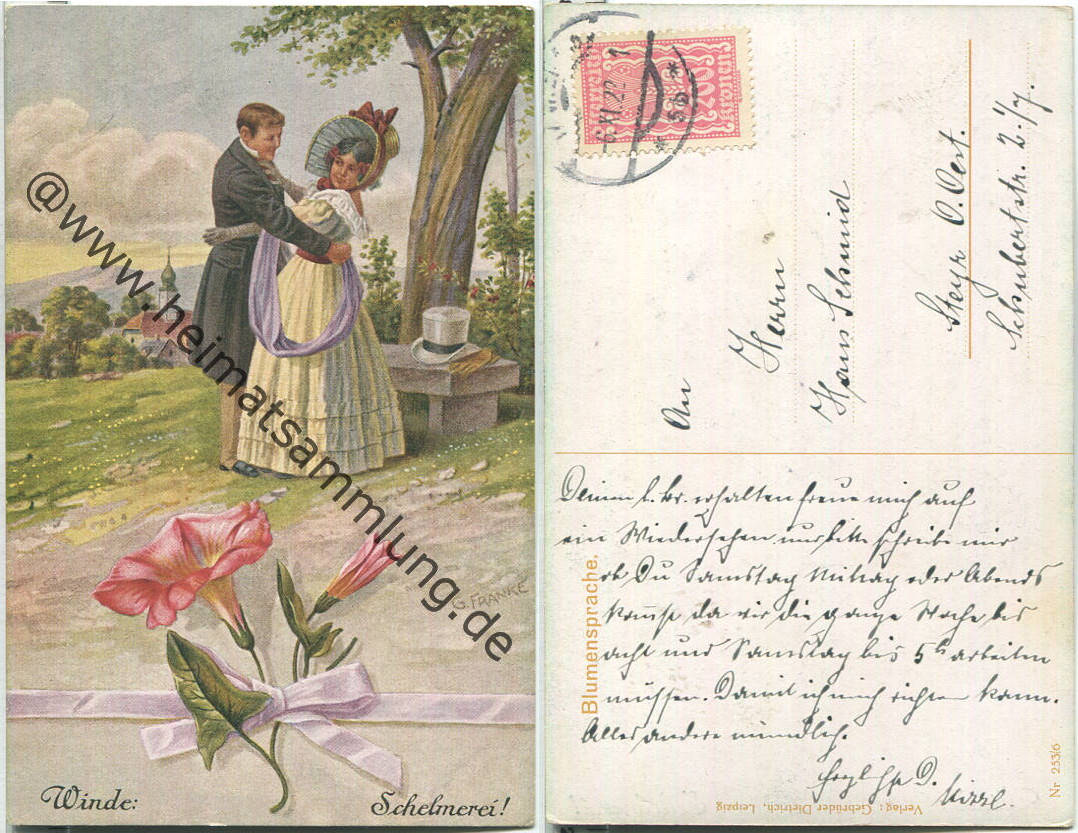 @www.heimatsammlung.de
G. FRANKE
Winde:
Schelmerei!
200
Kronen
6.XI.22
5b
An
Herrn
Hans Schmid
Steyr O. Oest.
Schubertstr. 2./7.
Deinen l. Br. erhalten freue mich auf
ein Wiedersehen nur bitte schreibe mir
ob Du Samstag Mittag oder Abends
kommst da wir die ganze Woche bis
acht und Samstag bis 5h arbeiten
müssen. Damit ich mich richten kann.
Alles andere mündlich.
D.
Blumensprache.
Verlag: Gebrüder Dietrich, Leipzig
Nr 253/6